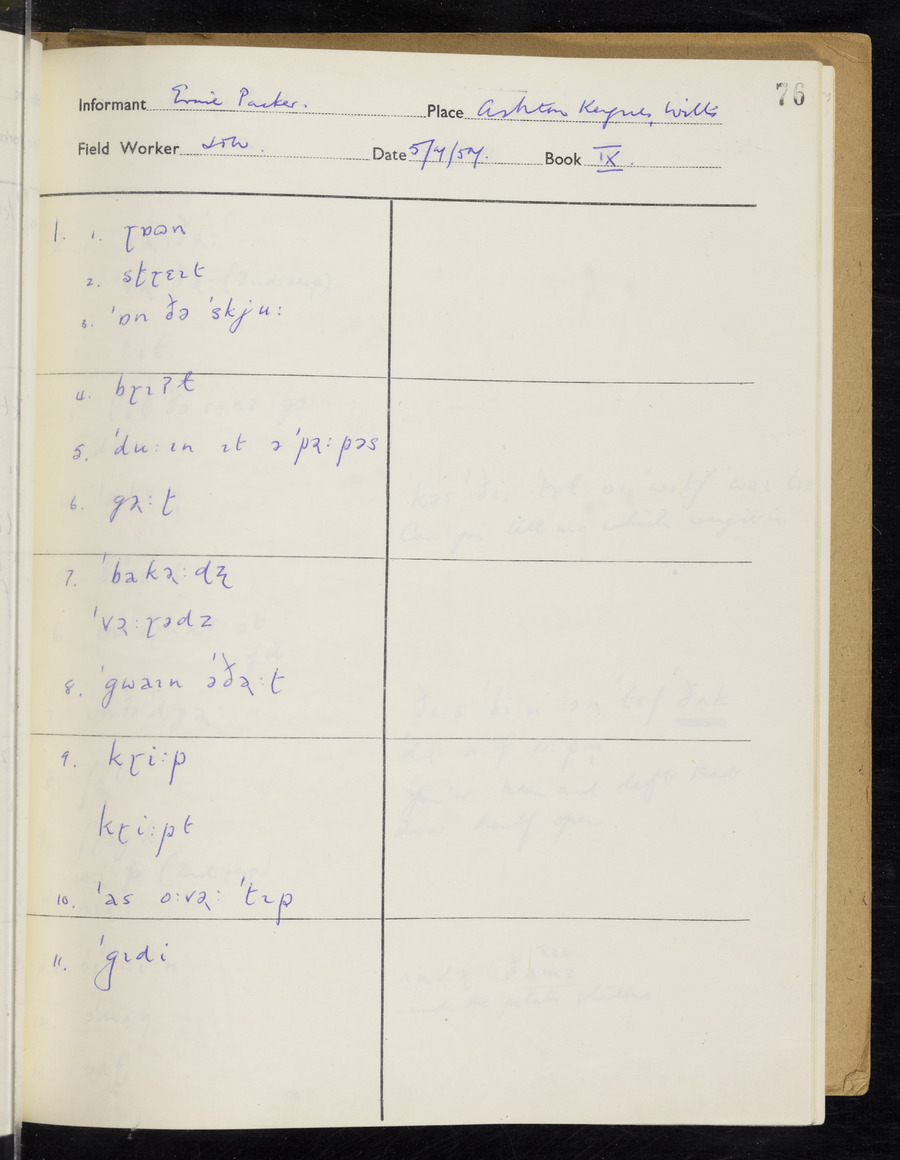 76
Informant Ernie Packer.
Place Ashton Keynes, Wilts
Field Worker
Date 5/4/57.
Book IX.
1. 1. ɽɒʊn
2. stɽɛɪt
3. ˈɒn ðə ˈskjuː
4. bɽɪʔt
5. ˈduːɪn ɪt ə ˈpɚːpəs
6. gɚːt
7. ˈbakɚːdʐ
ˈvɚːɽədz
8. ˈgwaɪn əˈðɚːt
9. kɽiːp
kɽiːpt
10. ˈas oːvɚː ˈtɪp
11. ˈgɪdi